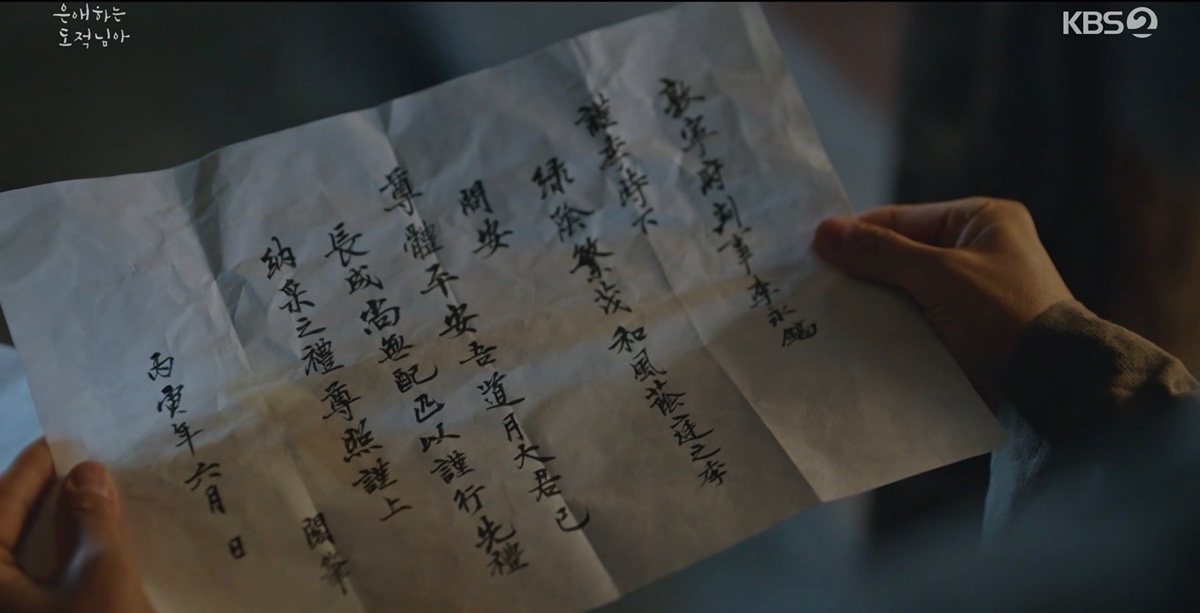 은애하는
도적님아
KBS2
敦寧府判事李永
謹奉時下
綠陰繁茂和風蔭庭之季
問安
尊體平安吾道月大君已
長成尚無配匹以謹行先禮
納采之禮尊照謹上
閣筆
丙寅年六月 日